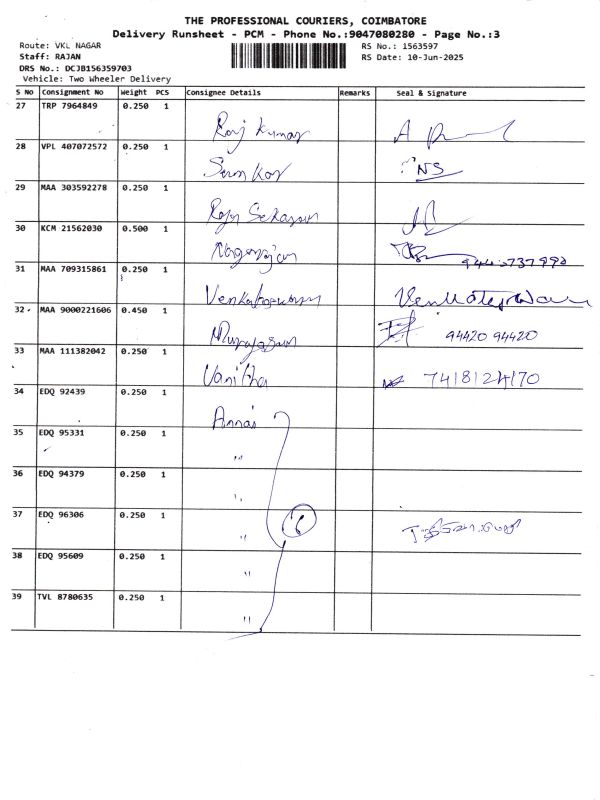 THE PROFESSIONAL COURIERS, COIMBATORE
Delivery Runsheet - PCM - Phone No.:9047080280 - Page No.:3
Route: VKL NAGAR
RS No.: 1563597
Staff: RAJAN
RS Date: 10-Jun-2025
DRS No.: DCJB156359703
Vehicle: Two Wheeler Delivery
S No Consignment No Weight PCS Consignee Details Remarks Seal & Signature
27 TRP 7964849 0.250 1 Raj Kumar
28 VPL 407072572 0.250 1 NS
29 MAA 303592278 0.250 1
30 KCM 21562030 0.500 1 Nagarajan
31 MAA 709315861 0.250 1 Venkateswaran
32 MAA 9000221606 0.450 1 Murugesan 94420 94420
33 MAA 111382042 0.250 1 Vanitha 7418124170
34 EDQ 92439 0.250 1 Annai
35 EDQ 95331 0.250 1 "
36 EDQ 94379 0.250 1 "
37 EDQ 96306 0.250 1 " 6
38 EDQ 95609 0.250 1 "
39 TVL 8780635 0.250 1 "